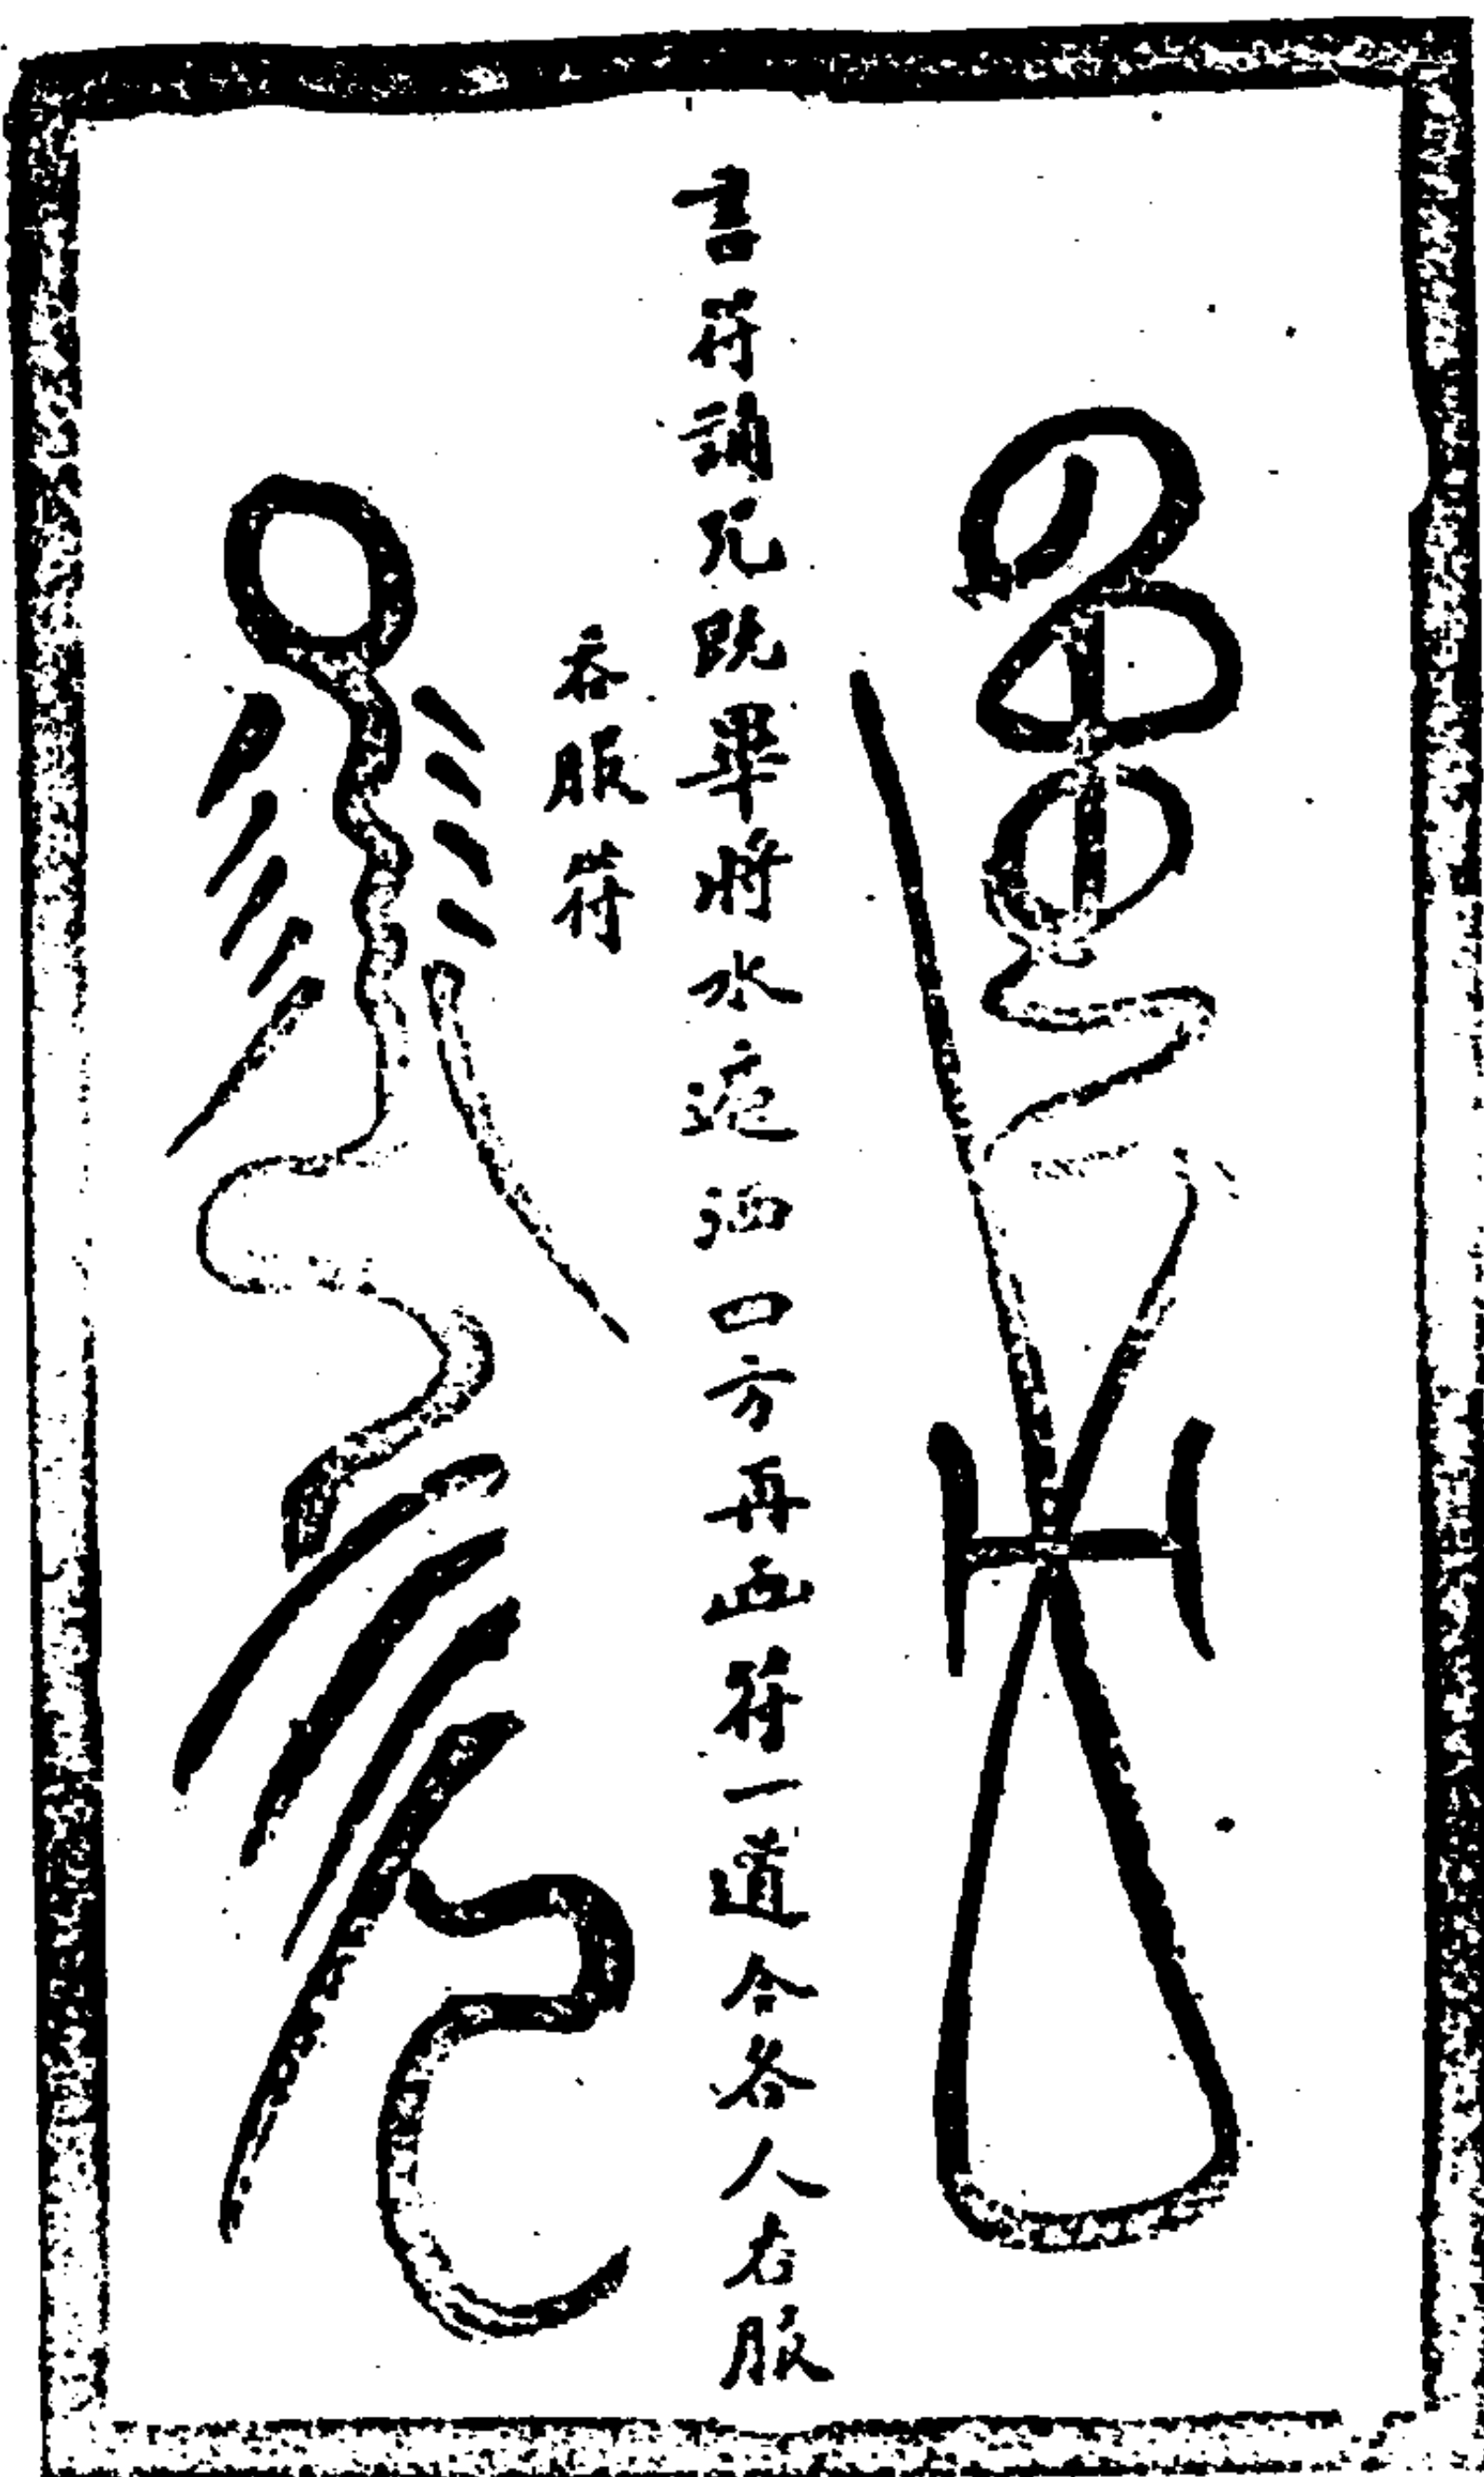 書符誦咒既畢將水洒四方再符一道令各人右服
吞服符